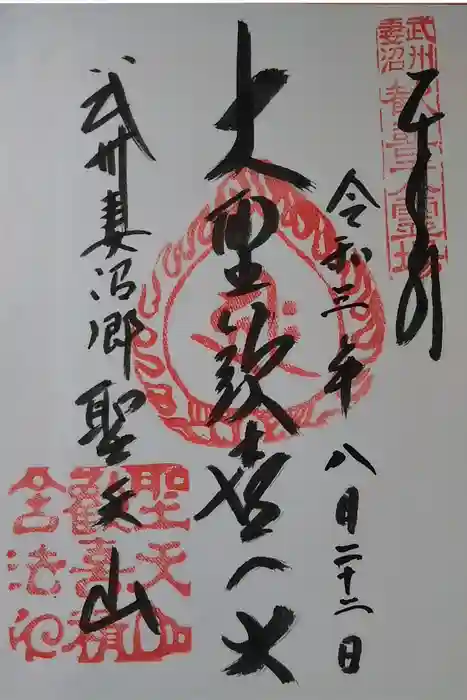 武州
妻沼
奉拝
令和三年八月二十二日
大聖歓喜天
武州妻沼郷聖天山
聖天山
歡喜院